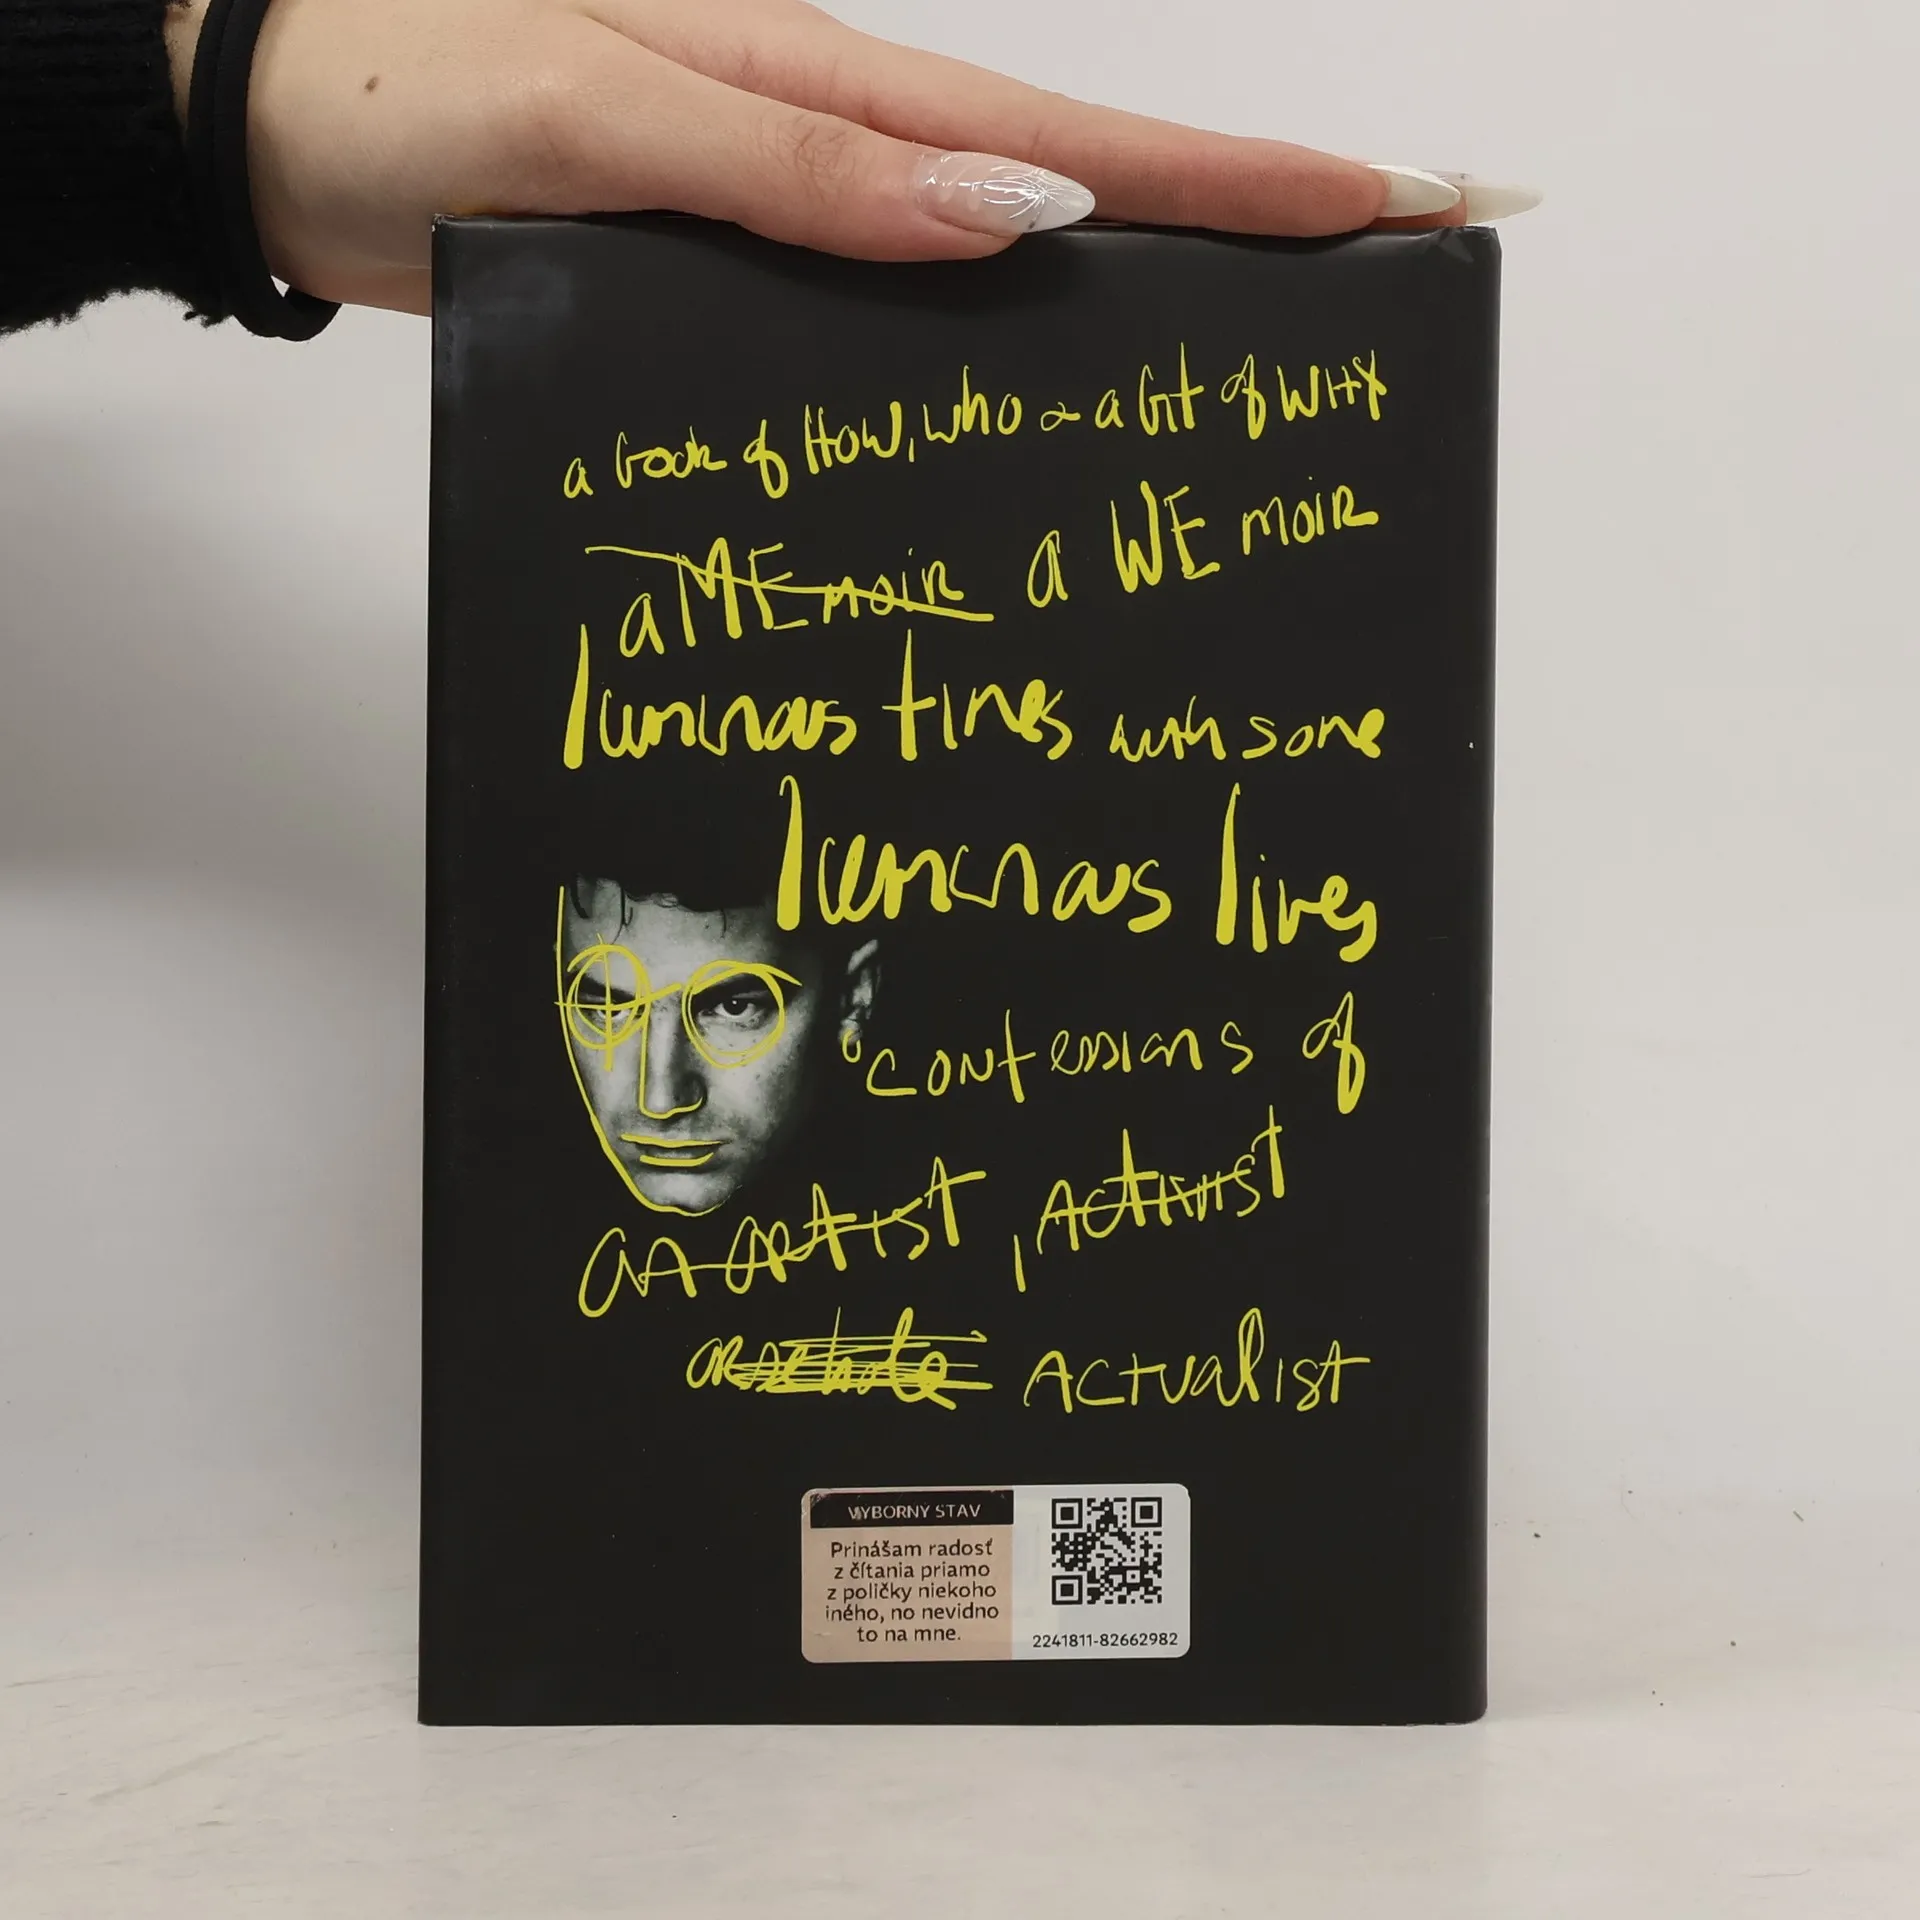 a book of HOW, who & a bit of WHY
a MEmoir a WE moir
luminous times with some
luminous lives
confessions of
an artist, Activist
ACTUALIST
VÝBORNÝ STAV
Prinášam radosť
z čítania priamo
z poličky niekoho
iného, no nevidno
to na mne.
2241811-82662982